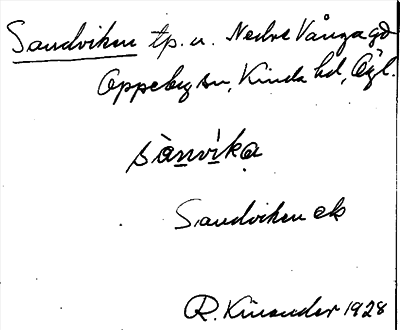 Sandviken tp. u. Nedre Vånga gd
Oppeby sn, Kinda hd, Ögl.
sànvi̍ka
Sandviken ek
R. Kinander 1928